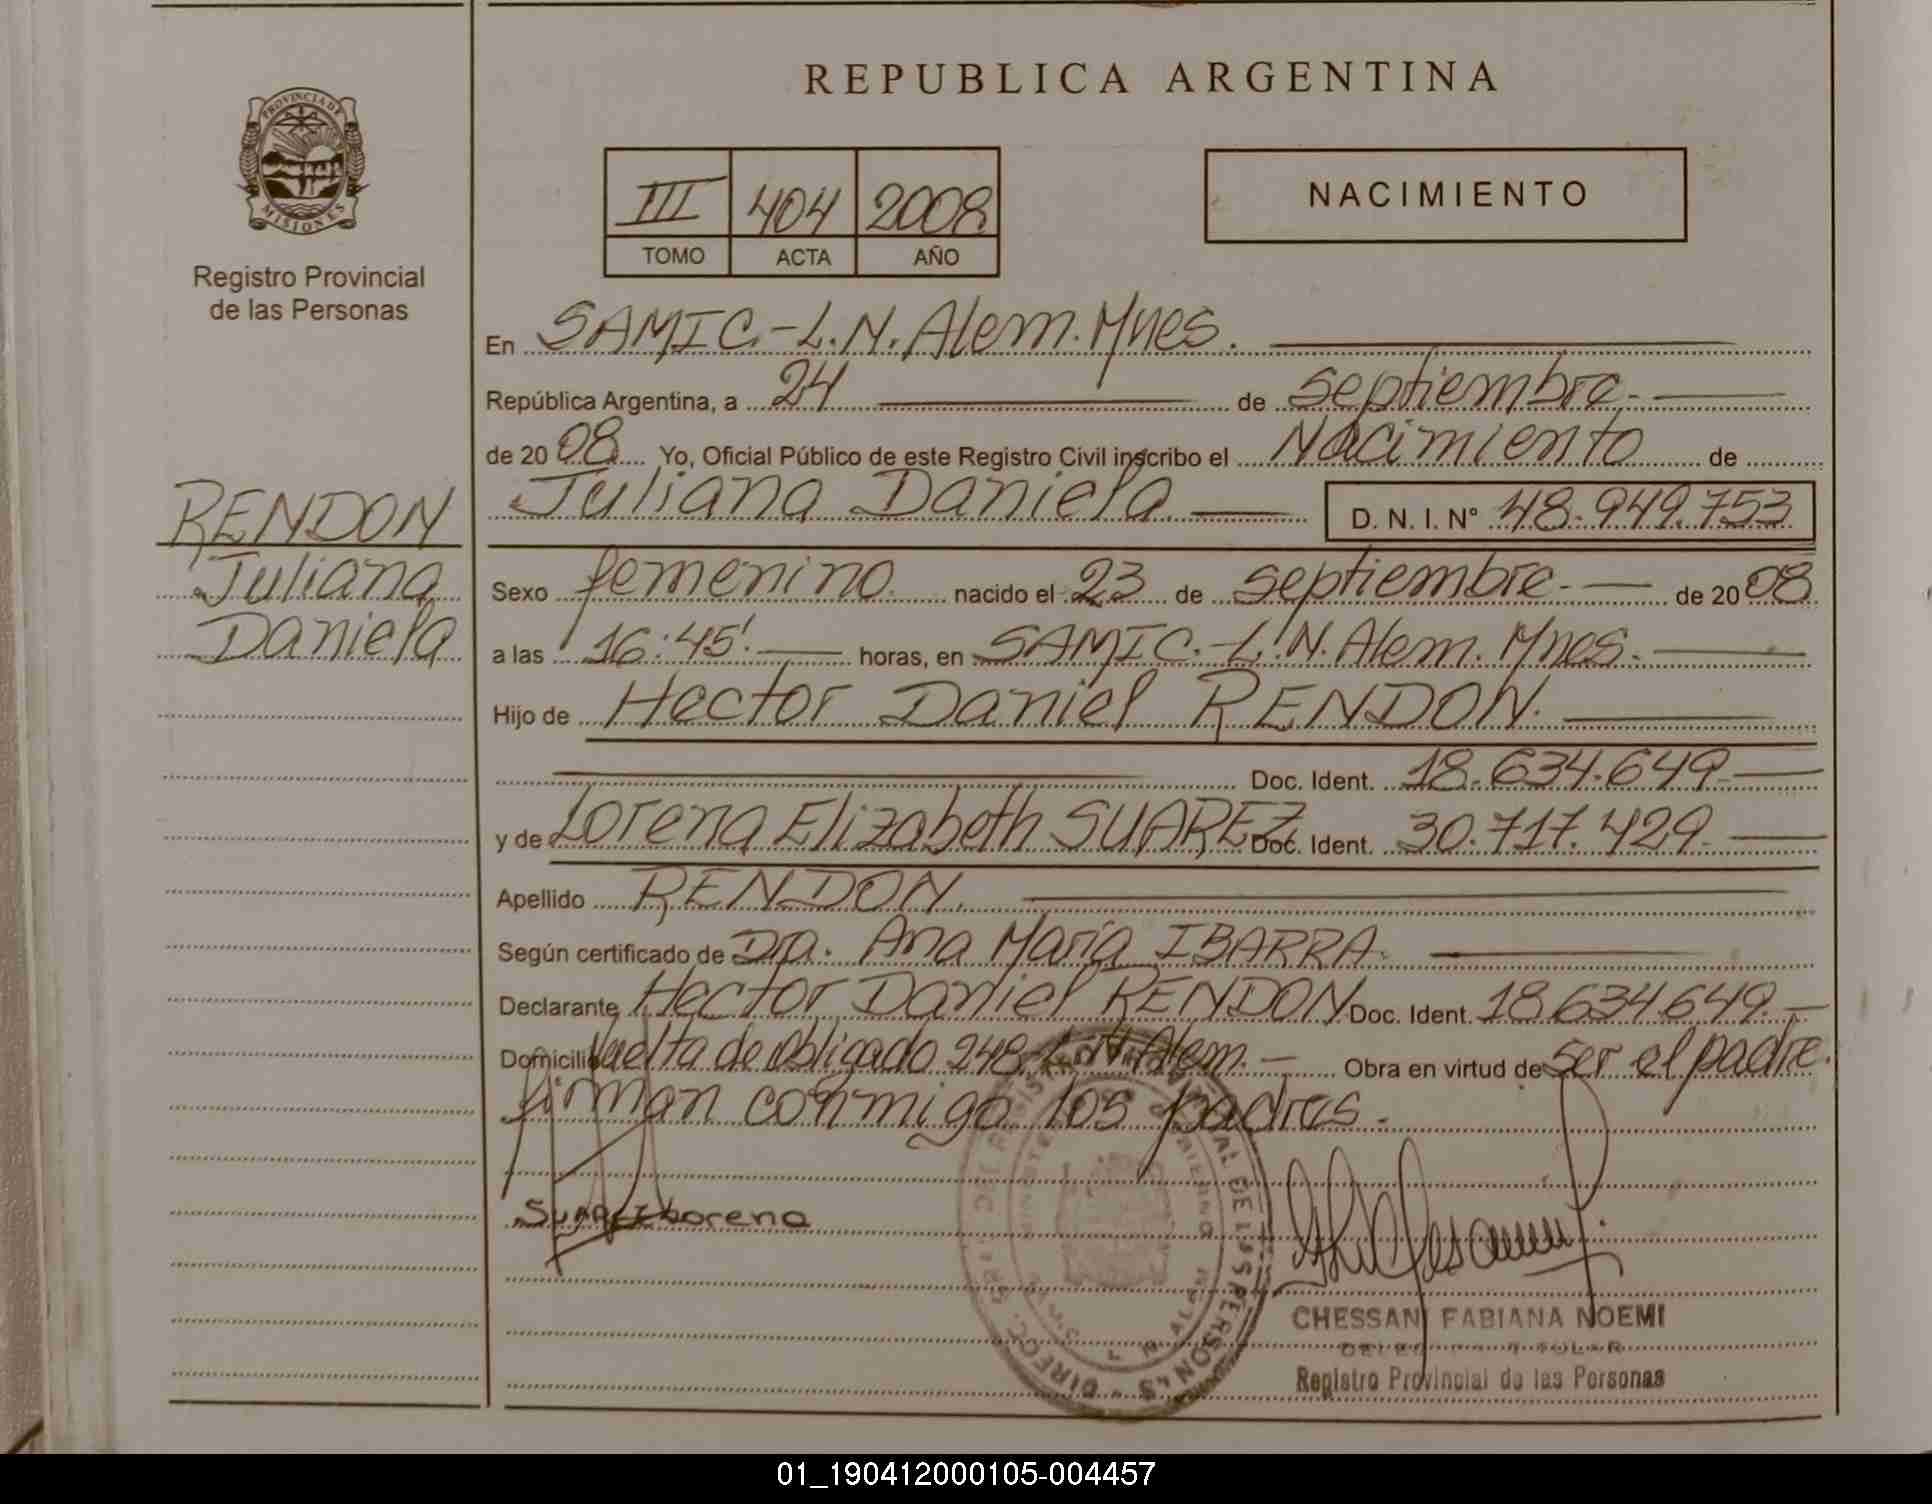 REPUBLICA ARGENTINA
PROVINCIA DE MISIONES
Registro Provincial
de las Personas
III 404 2008
TOMO ACTA AÑO
NACIMIENTO
En SAMIC.-L.N.Alem.Mnes.
República Argentina, a 24 de septiembre.
de 2008 Yo, Oficial Público de este Registro Civil inscribo el Nacimiento de
Juliana Daniela D. N. I. N° 48.949.753
RENDON
Juliana
Daniela
Sexo femenino nacido el 23 de septiembre. de 2008
a las 16:45'. horas, en SAMIC.-L.N.Alem.Mnes.
Hijo de Hector Daniel RENDON.
Doc. Ident. 18.634.649.
y de Lorena Elizabeth SUAREZ Doc. Ident. 30.717.429.
Apellido RENDON.
Según certificado de Dra. Ana María IBARRA.
Declarante Hector Daniel RENDON Doc. Ident. 18.634.649.
Domicilio Vuelta de Obligado 248. L.N.Alem.- Obra en virtud de ser el padre.
firman conmigo los padres.
Suarez Lorena
CHESSANI FABIANA NOEMI
TITULAR
Registro Provincial de las Personas
01_190412000105-004457